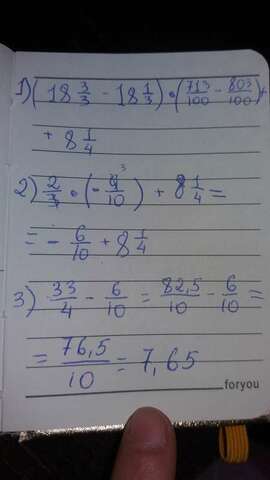 1) (18 3/3 - 18 1/3) • (713/100 - 803/100) +
+ 8 1/4
2) 2/3 • (- 9/10) 3 + 8 1/4 =
= - 6/10 + 8 1/4
3) 33/4 - 6/10 = 82,5/10 - 6/10 =
= 76,5/10 = 7,65
foryou